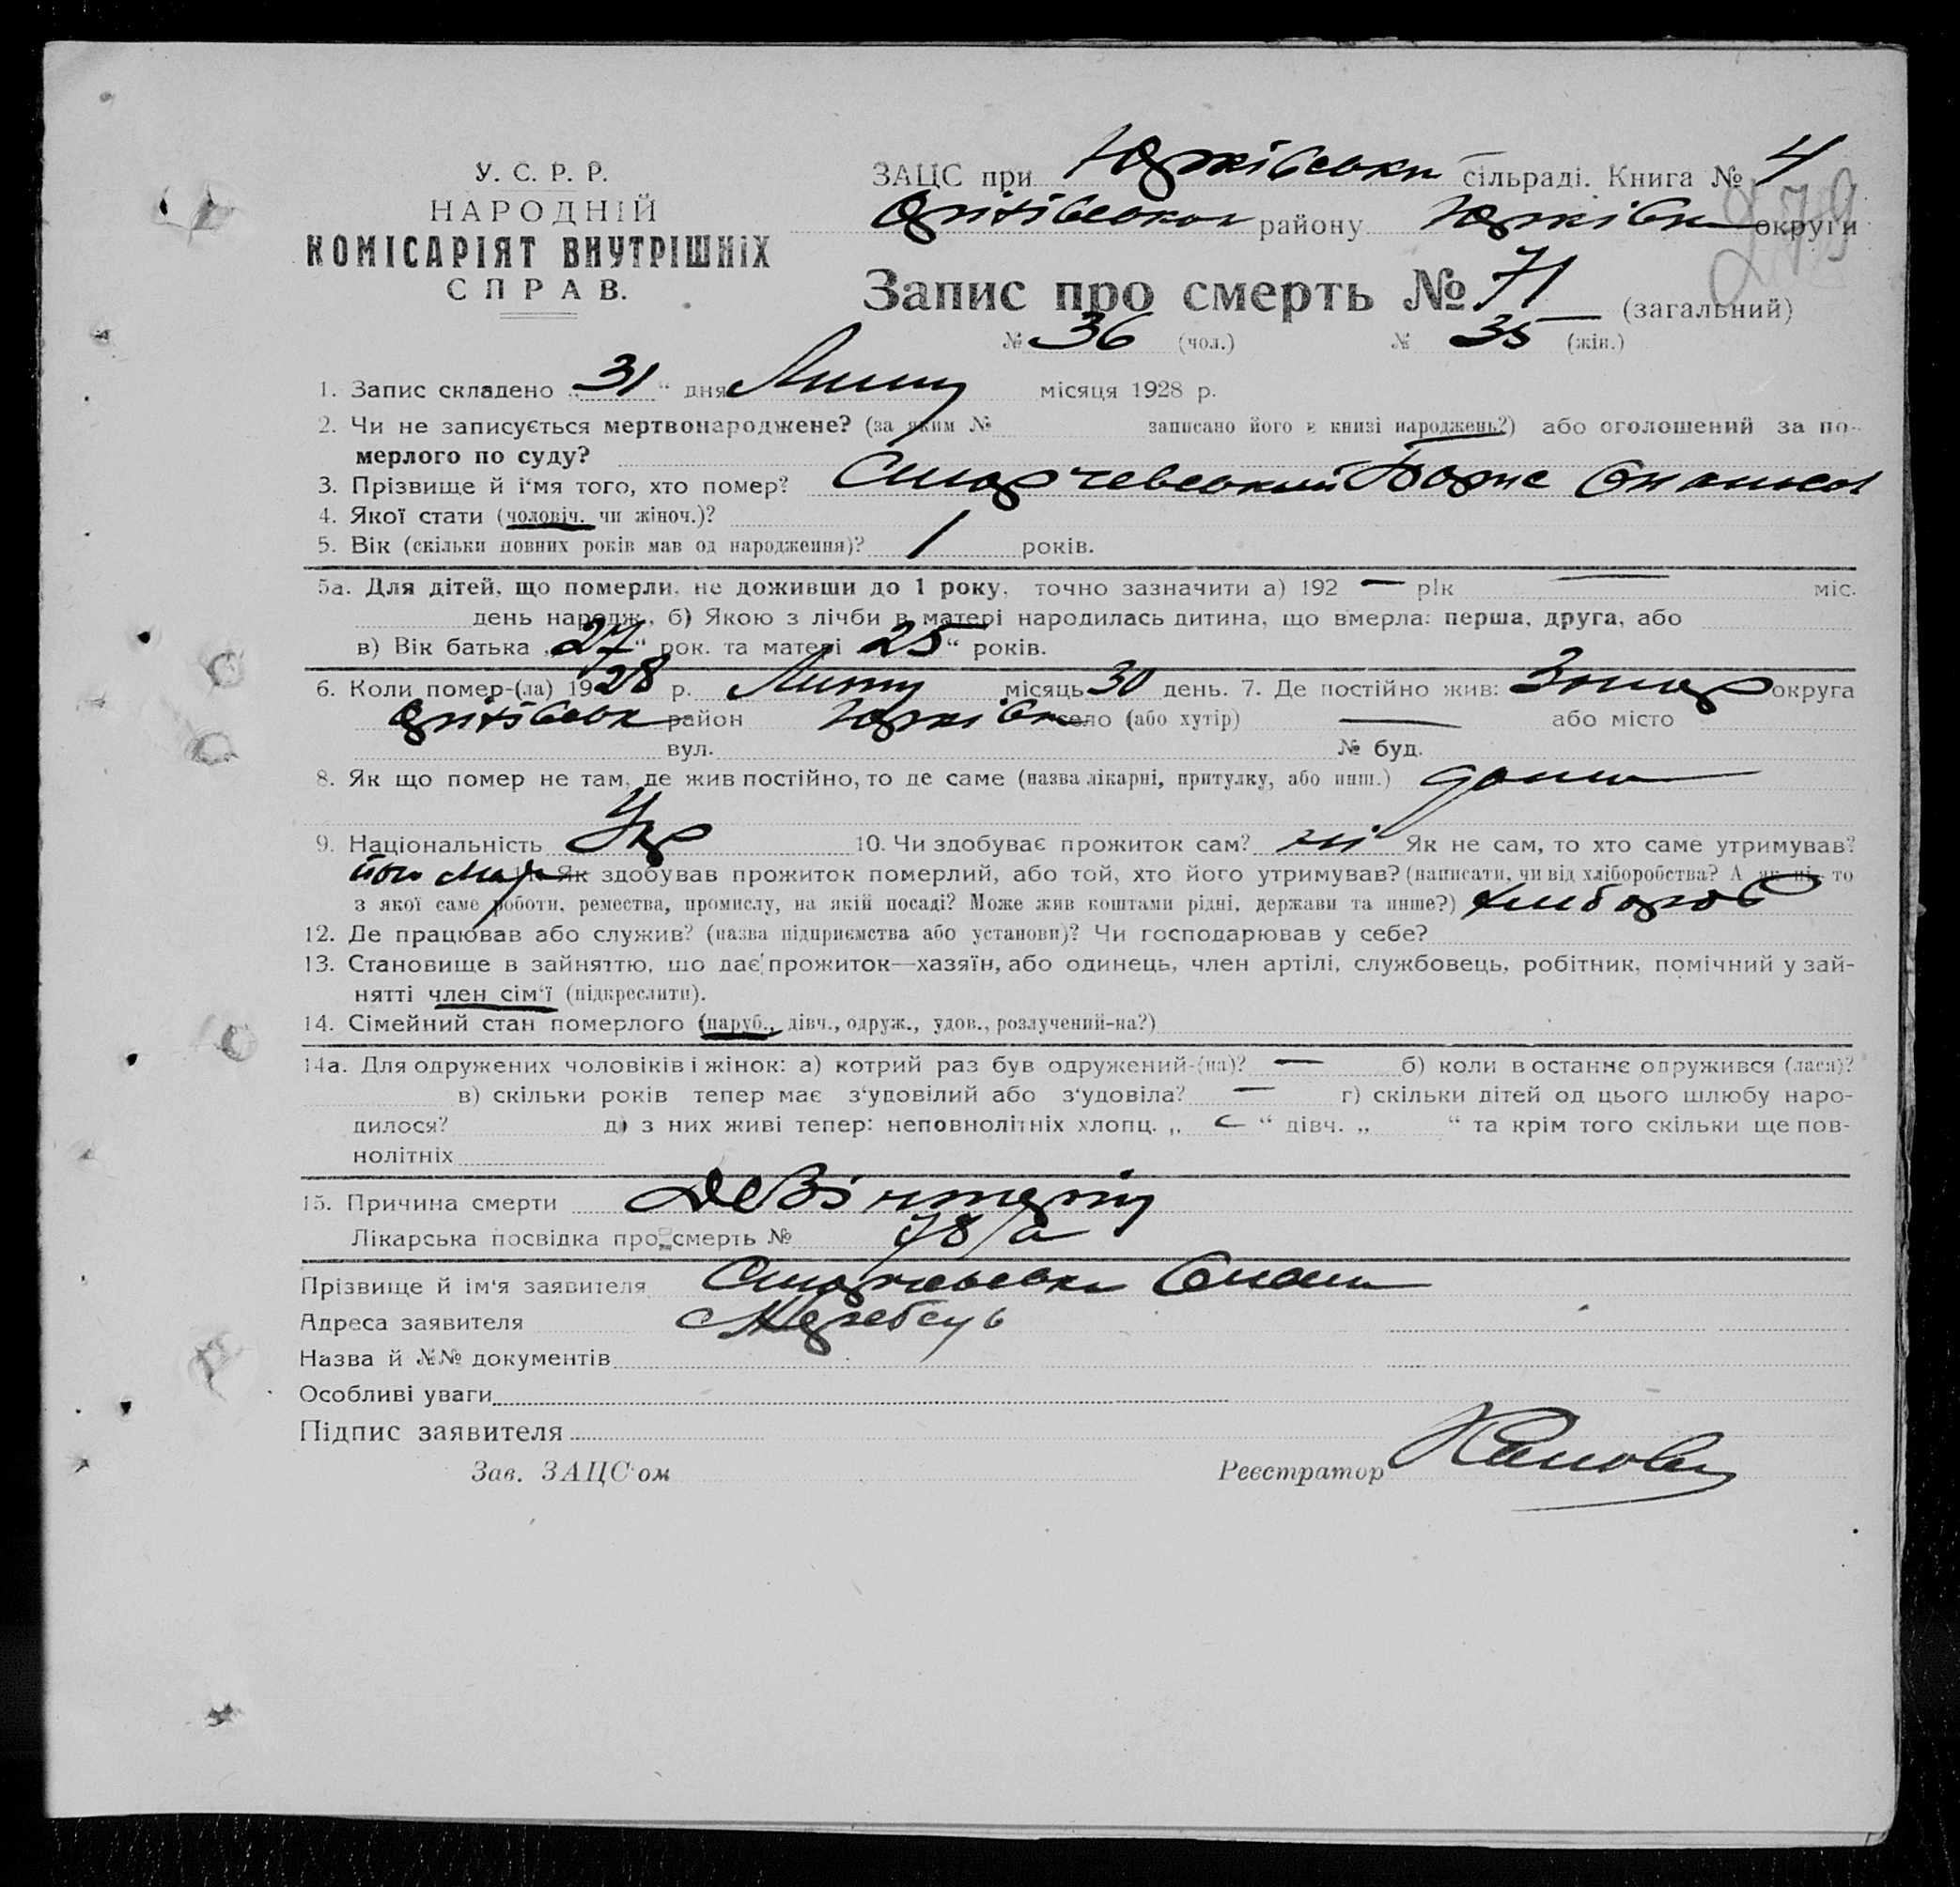 У. С. Р. Р.
НАРОДНІЙ
КОМІСАРІЯТ ВНУТРІШНІХ
СПРАВ.
ЗАЦС при Юрківськи сільраді. Книга № 4
району Юрківк округи
279
Запис про смерть № 71 (загальний)
№ 36 (чол.) № 35 (жін.)
1. Запис складено „31“ дня Липня місяця 1928 р.
2. Чи не записується мертвонароджене? (за яким № записано його в книзі народжень?) або оголошений за по-
мерлого по суду?
3. Прізвище й і'мя того, хто помер? Старчевський Борис
4. Якої стати (чоловіч. чи жіноч.)?
5. Вік (скільки повних років мав од народження)? 1 років.
5а. Для дітей, що померли, не доживши до 1 року, точно зазначити а) 192 — рік — міс.
день народж., б) Якою з лічби в матері народилась дитина, що вмерла: перша, друга, або
в) Вік батька „27“ рок. та матері „25“ років.
6. Коли помер-(ла) 1928 р. Липня місяць 30 день. 7. Де постійно жив: округа
район Юрківк село (або хутір) — або місто
вул. № буд.
8. Як що помер не там, де жив постійно, то де саме (назва лікарні, притулку, або инш.) дома
9. Національність Укр 10. Чи здобуває прожиток сам? ні Як не сам, то хто саме утримував?
його Як здобував прожиток померлий, або той, хто його утримував? (написати, чи від хліборобства? А як ні, то
з якої саме роботи, ремества, промислу, на якій посаді? Може жив коштами рідні, держави та инше?) хлібороб
12. Де працював або служив? (назва підприємства або установи)? Чи господарював у себе?
13. Становище в зайняттю, що дає прожиток—хазяїн, або одинець, член артілі, службовець, робітник, помічний у зай-
нятті член сім'ї (підкреслити).
14. Сімейний стан померлого (паруб., дівч., одруж., удов., розлучений-на?)
14а. Для одружених чоловіків і жінок: а) котрий раз був одружений-(на)? — б) коли в останнє одружився (лася)?
в) скільки років тепер має з'удовілий або з'удовіла? — г) скільки дітей од цього шлюбу наро-
дилося? д) з них живі тепер: неповнолітніх хлопц. „ “ дівч. „ “ та крім того скільки ще пов-
нолітніх
15. Причина смерти
Лікарська посвідка про смерть № 78/а
Прізвище й ім'я заявителя Старчевськи
Адреса заявителя
Назва й №№ документів
Особливі уваги
Підпис заявителя
Зав. ЗАЦС'ом Реєстратор